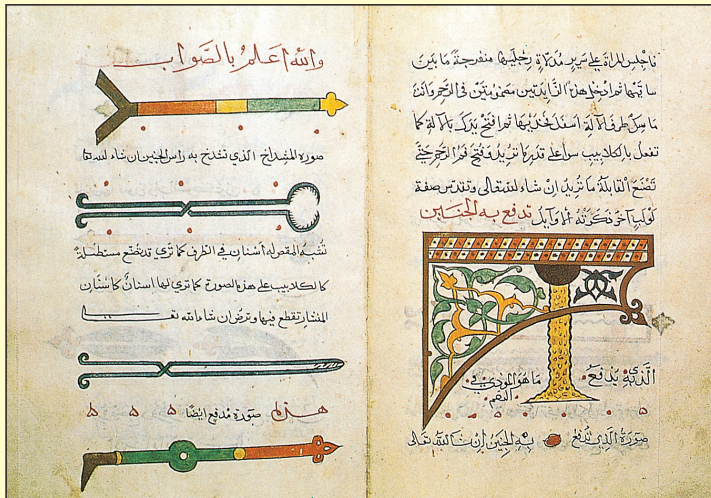 فاجلس المراة علي سرير مدلاة رجليها منفرجة ما بين
ساقيها ثم ادخل هذه الزايدتين مضمومتين في الرحم وانت
ماسك طرف الآلة اسفل فخذيها ثم افتح يدك بالآلة كما
تفعل بالكلاليب سوا علي قدر ما تريد وفتح فم الرحم حتي
تصنع القابلة ما تريد ان شاء الله تعالي وتقدس صفة
لولب آخر ذكرته الاوايل تدفع به الجنين
الذي يدفع ما هو المودي في
الفم
صورة الذي تدفع به الجنين ان شا الله تعالي
والله اعلم بالصواب
صورة المشداخ الذي تشدخ به راس الجنين ان شاء الله تعا
تشبه المقص له اسنان في الطرف كما تري قد تصنع مستطيلة
كالكلاليب علي هذه الصورة كما تري لها اسنان كاسنان
المنشار تقطع فيها وترض ان شاء الله تعا
هذه صورة مدفع ايضا